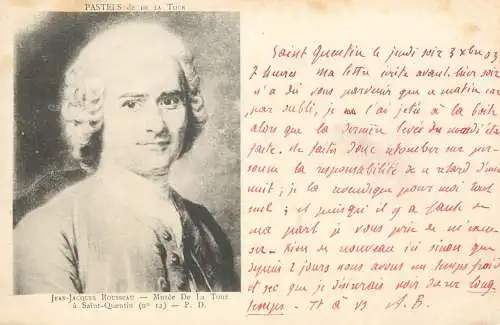 PASTELS de DE LA TOUR
Saint Quentin le jeudi soir 3 xbre 03
7 heures ma lettre écrite avant-hier soir
n'a dû vous parvenir que ce matin car
par oubli, je ne l'ai jetée à la boîte
alors que la dernière levée du mardi était
faite. Ne faites donc retomber sur per-
sonne la responsabilité de ce retard d'une
nuit ; je la revendique pour moi tout
seul ; et puisqu'il y a faute de
ma part je vous prie de m'excu-
ser. Rien de nouveau ici sinon que
depuis 2 jours nous avons un temps froid
et sec que je désirerais voir durer long
temps. Tt à vs A. B.
JEAN-JACQUES ROUSSEAU — MUSÉE DE LA TOUR
à SAINT-QUENTIN (no 12) — P. D.